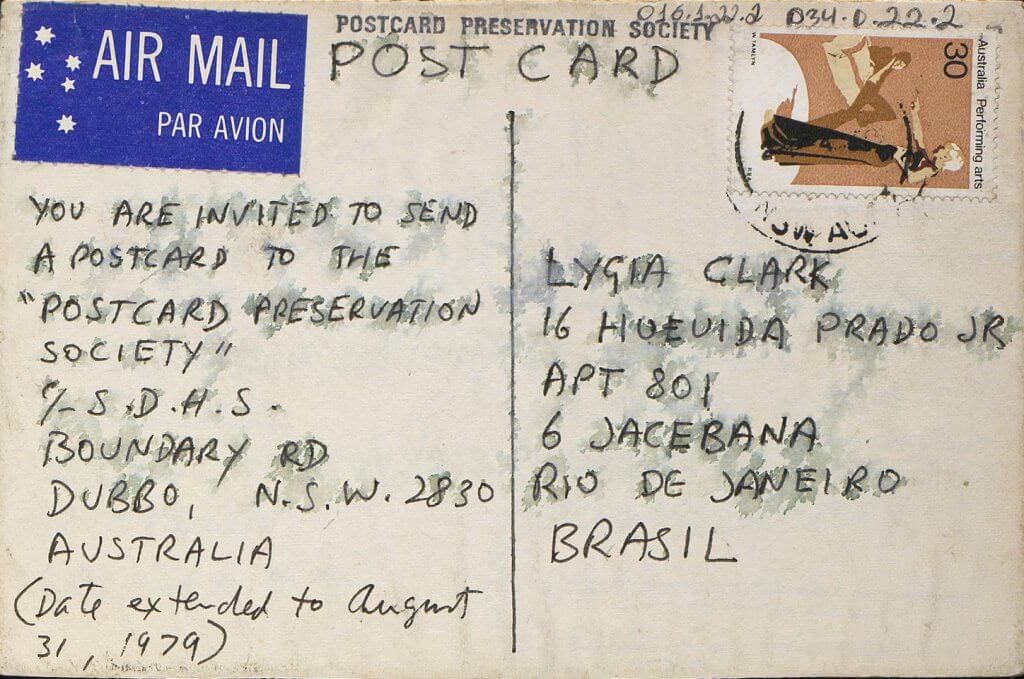 AIR MAIL
PAR AVION
POSTCARD PRESERVATION SOCIETY
POST CARD
016.1.22.2 034.0.22.2
30
Australia Performing arts
W TAMLYN
YOU ARE INVITED TO SEND
A POSTCARD TO THE
"POSTCARD PRESERVATION
SOCIETY"
C/- S.D.H.S.
BOUNDARY RD
DUBBO, N.S.W. 2830
AUSTRALIA
(Date extended to August
31, 1979)
LYGIA CLARK
16 HUEVIDA PRADO JR
APT 801
6 JACEBANA
RIO DE JANEIRO
BRASIL